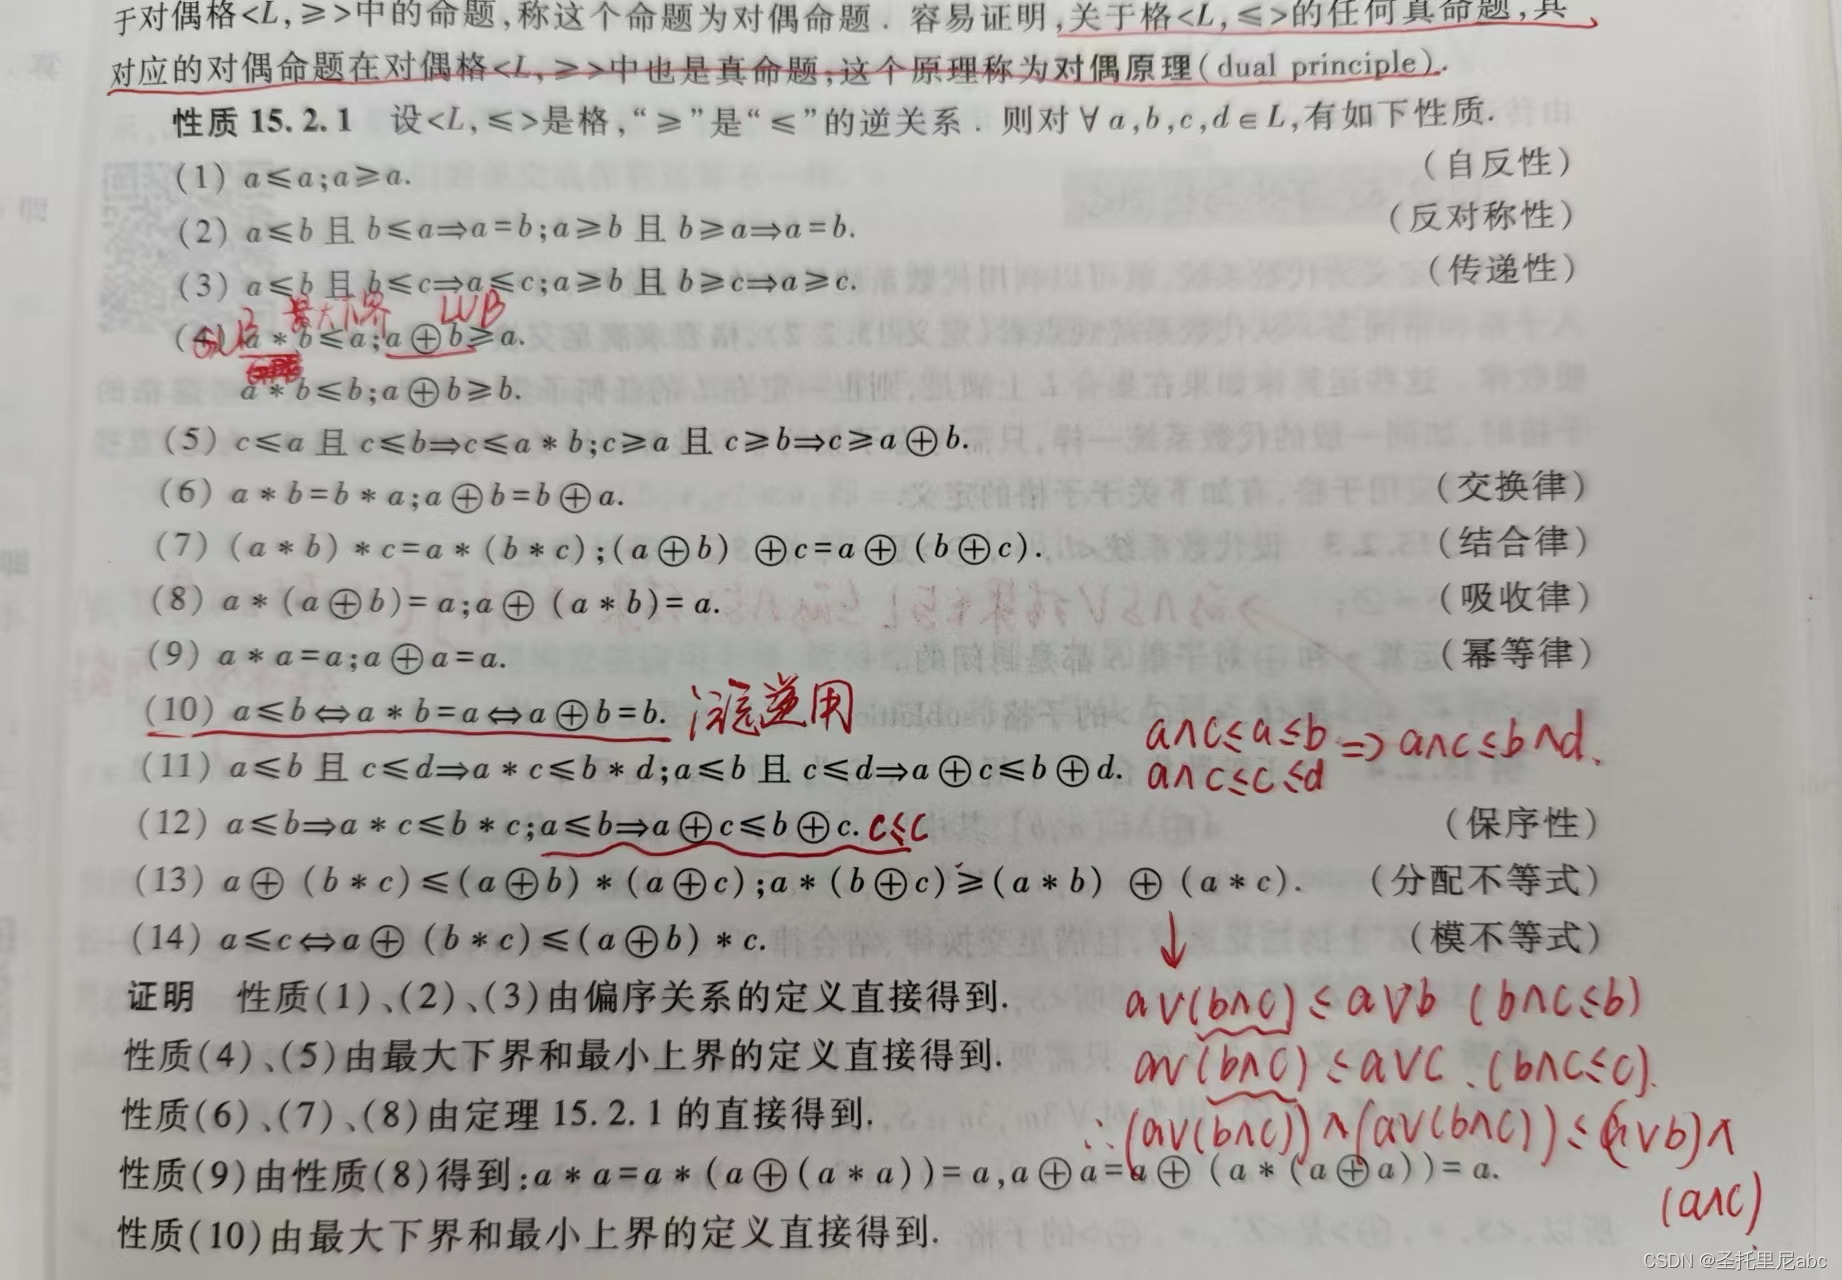 于对偶格<L,⩾>中的命题,称这个命题为对偶命题. 容易证明,关于格<L,⩽>的任何真命题,其
对应的对偶命题在对偶格<L,⩾>中也是真命题,这个原理称为对偶原理(dual principle).
性质 15.2.1 设<L,⩽>是格,“⩾”是“⩽”的逆关系. 则对∀a,b,c,d∈L,有如下性质.
(1) a⩽a;a⩾a. (自反性)
(2) a⩽b 且 b⩽a⇒a=b;a⩾b 且 b⩾a⇒a=b. (反对称性)
(3) a⩽b 且 b⩽c⇒a⩽c;a⩾b 且 b⩾c⇒a⩾c. (传递性)
GLB 最大下界 LUB
(4) a*b⩽a;a⊕b⩾a.
a*b⩽b;a⊕b⩾b.
(5) c⩽a 且 c⩽b⇒c⩽a*b;c⩾a 且 c⩾b⇒c⩾a⊕b.
(6) a*b=b*a;a⊕b=b⊕a. (交换律)
(7) (a*b)*c=a*(b*c);(a⊕b)⊕c=a⊕(b⊕c). (结合律)
(8) a*(a⊕b)=a;a⊕(a*b)=a. (吸收律)
(9) a*a=a;a⊕a=a. (幂等律)
(10) a⩽b⇔a*b=a⇔a⊕b=b. 注意逆用
a∧c≤a≤b ⇒ a∧c≤b∧d.
a∧c≤c≤d
(11) a⩽b 且 c⩽d⇒a*c⩽b*d;a⩽b 且 c⩽d⇒a⊕c⩽b⊕d.
(12) a⩽b⇒a*c⩽b*c;a⩽b⇒a⊕c⩽b⊕c. c≤c (保序性)
(13) a⊕(b*c)⩽(a⊕b)*(a⊕c);a*(b⊕c)⩾(a*b)⊕(a*c). (分配不等式)
(14) a⩽c⇔a⊕(b*c)⩽(a⊕b)*c. (模不等式)
证明 性质(1)、(2)、(3)由偏序关系的定义直接得到.
a∨(b∧c)≤a∨b (b∧c≤b)
性质(4)、(5)由最大下界和最小上界的定义直接得到.
a∨(b∧c)≤a∨c. (b∧c≤c).
性质(6)、(7)、(8)由定理 15.2.1 的直接得到.
∴(a∨(b∧c))∧(a∨(b∧c))≤(a∨b)∧
性质(9)由性质(8)得到:a*a=a*(a⊕(a*a))=a,a⊕a=a⊕(a*(a⊕a))=a.
(a∧c).
性质(10)由最大下界和最小上界的定义直接得到.
CSDN @圣托里尼abc